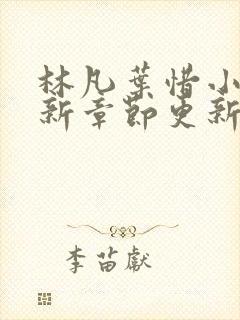 林凡葉惜小
新章節更新
李苗獻